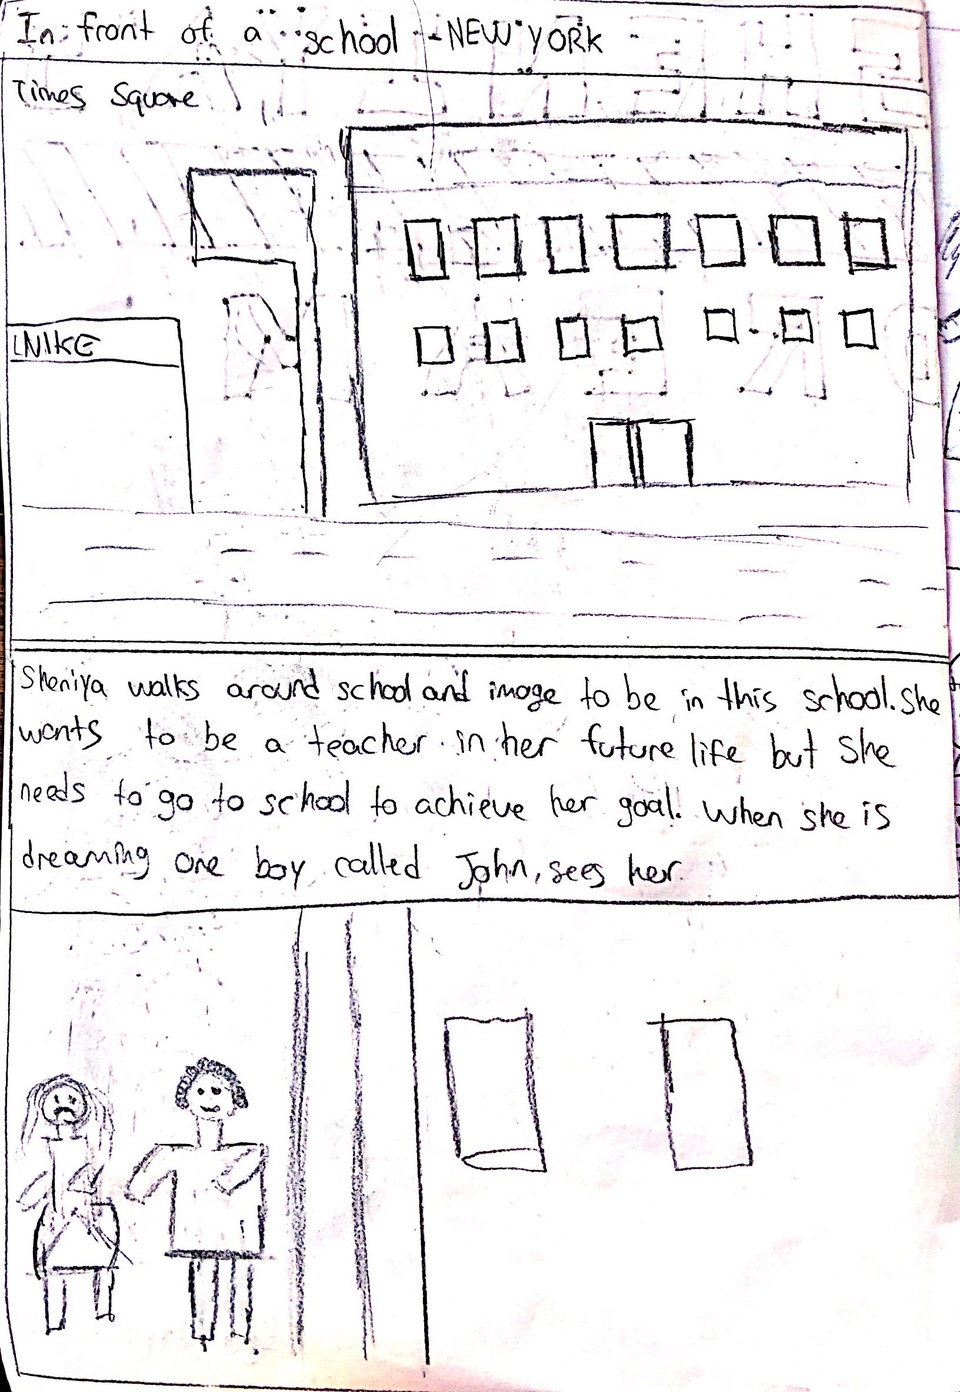 In front of a school - NEW YORK
Times Square
NIKE
Sheniya walks around school and image to be in this school. She
wants to be a teacher in her future life but she
needs to go to school to achieve her goal. When she is
dreaming one boy called John, sees her.